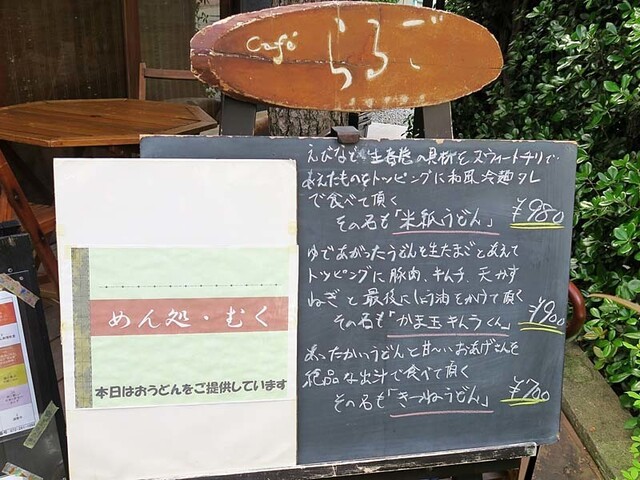 Café
らるご
えびなど生春巻の具材をスウィートチリで
あえたものをトッピングに和風冷麺タレ
で食べて頂く
その名も「米紙うどん」 ¥980
ゆであがったうどんを生たまごとあえて
トッピングに豚肉、キムチ、天かす
ねぎと最後にしょう油をかけて頂く
その名も「かま玉キムラくん」 ¥900
あったかいうどんと甘〜いおあげさんを
絶品な出汁で食べて頂く
その名も「きーつねうどん」 ¥700
めん処・むく
本日はおうどんをご提供しています